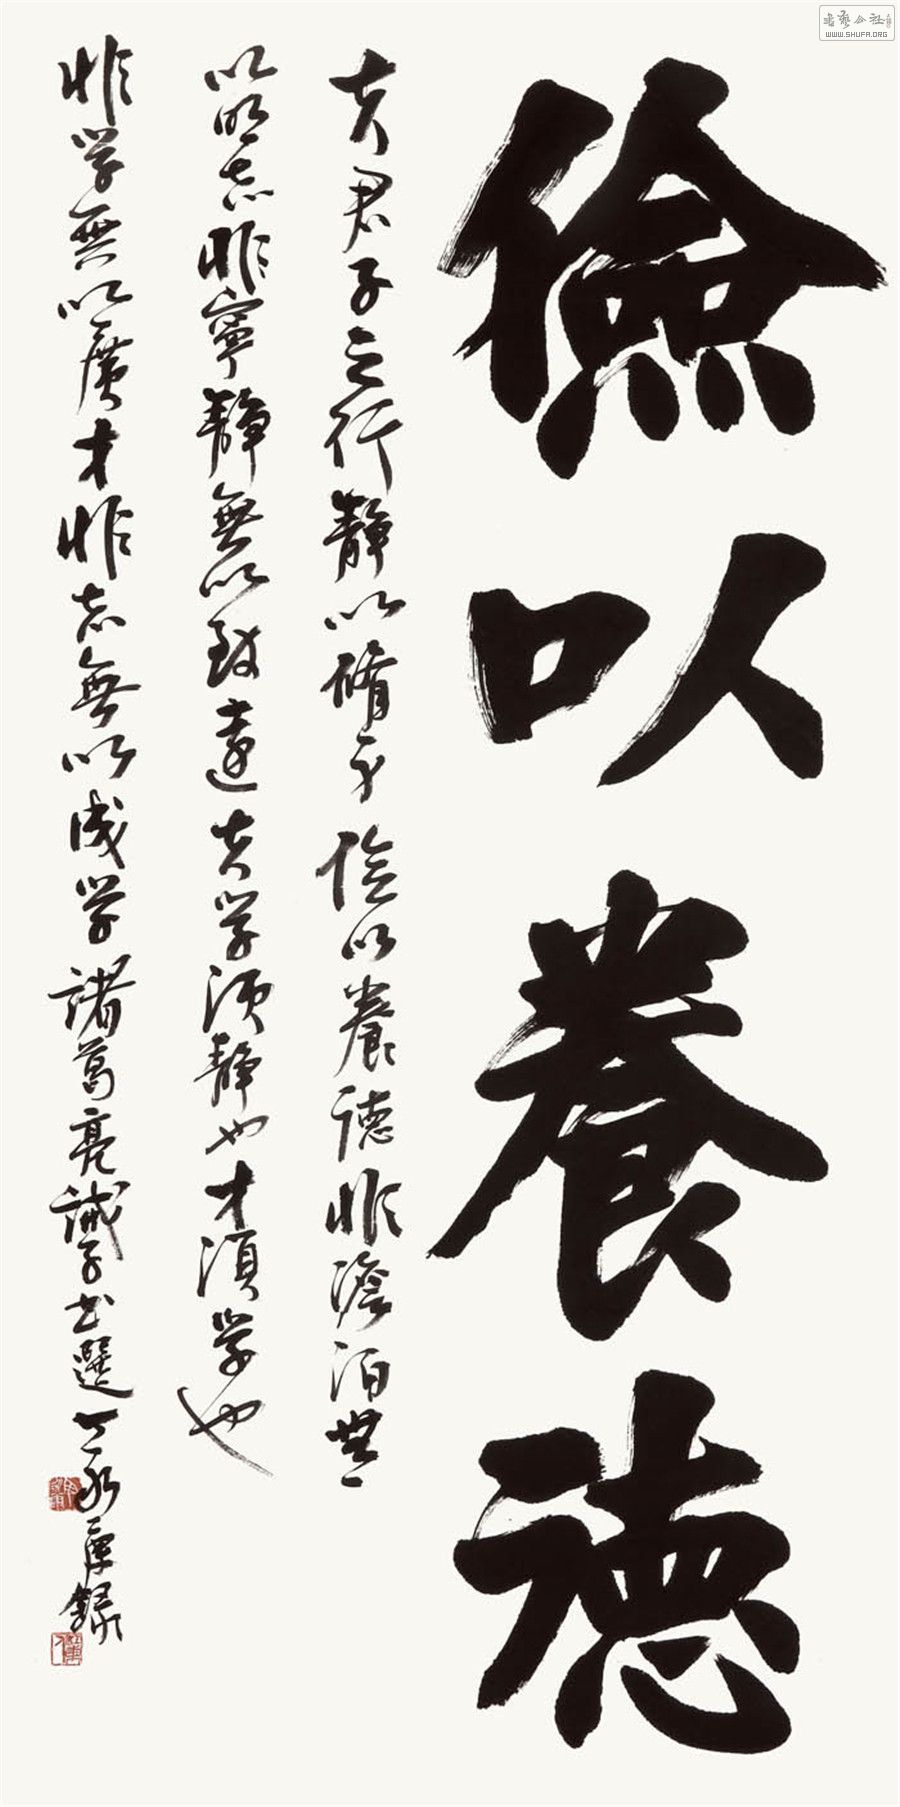 書藝公社
WWW.SHUFA.ORG
儉以養德
夫君子之行靜以脩身儉以養德非澹泊無
以明志非寧靜無以致遠夫学須靜也才須学也
非学無以廣才非志無以成学諸葛亮誡子书選